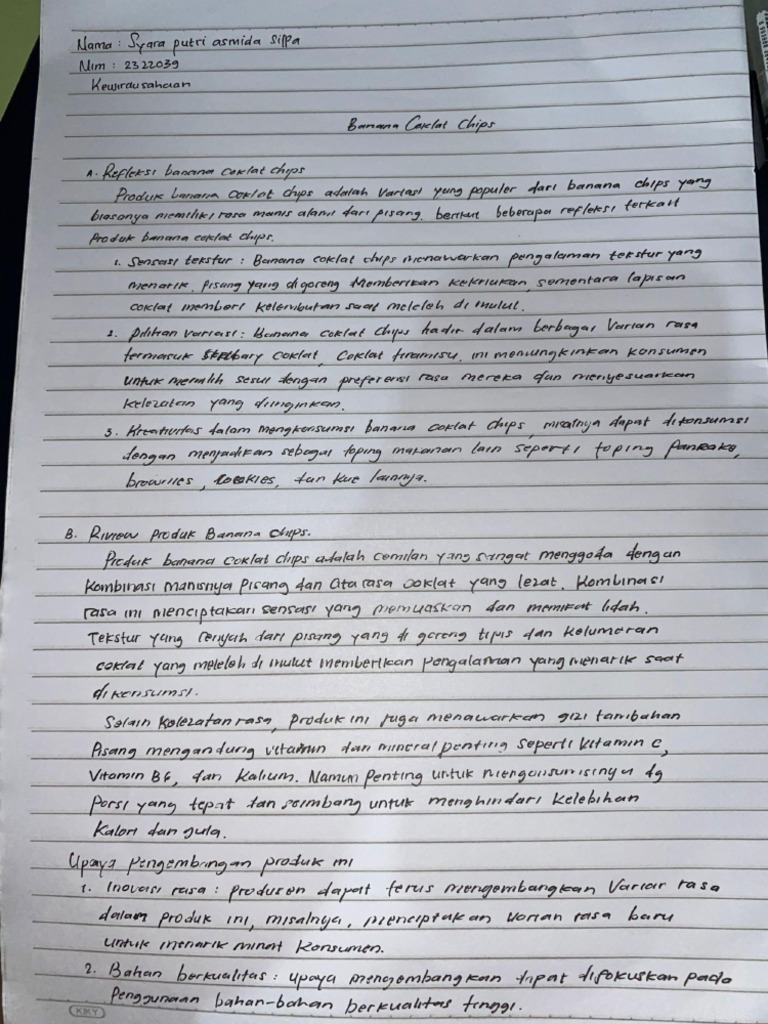 Nama : Syara putri asmida silpa
Nim : 2322039
Kewirausahaan
Banana Coklat Chips
A. Refleksi banana coklat chips
Produk banana coklat chips adalah variasi yang populer dari banana chips yang
biasanya memiliki rasa manis alami dari pisang. berikut beberapa refleksi terkait
Produk banana coklat chips.
1. Sensasi tekstur : Banana coklat chips menawarkan pengalaman tekstur yang
menarik, pisang yang di goreng memberikan kekriukan, sementara lapisan
coklat memberi kelembutan saat meleleh di mulut.
2. pilihan variasi : Banana coklat chips hadir dalam berbagai varian rasa
termasuk coklat, coklat tiramisu. ini memungkinkan konsumen
untuk memilih sesui dengan preferensi rasa mereka dan menyesuaikan
kelezatan yang diinginkan.
3. Kreativitas dalam mengkonsumsi banana coklat chips, misalnya dapat dikonsumsi
dengan menjadikan sebagai toping makanan lain seperti toping Pankake,
brownies, cookies, dan kue lainnya.
B. Riview Produk Banana chips.
Produk banana coklat chips adalah cemilan yang sangat menggoda dengan
kombinasi manisnya pisang dan cita rasa coklat yang lezat. kombinasi
rasa ini menciptakan sensasi yang memuaskan dan memikat lidah.
Tekstur yang renyah dari pisang yang di goreng tipis dan kelumeran
coklat yang meleleh di mulut memberikan pengalaman yang menarik saat
dikonsumsi.
Selain kelezatan rasa, produk ini juga menawarkan gizi tambahan
Pisang mengandung vitamin dan mineral penting seperti vitamin C,
Vitamin B6, dan Kalium. Namun Penting untuk mengonsumsinya dg
Porsi yang tepat dan seimbang untuk menghindari kelebihan
kalori dan gula.
Upaya pengembangan produk ini
1. Inovasi rasa : produsen dapat terus mengembangkan variar rasa
dalam produk ini, misalnya, menciptakan varian rasa baru
untuk menarik minat konsumen.
2. Bahan berkualitas : upaya mengembangkan dapat difokuskan pada
Penggunaan bahan-bahan berkualitas tinggi.
KKY